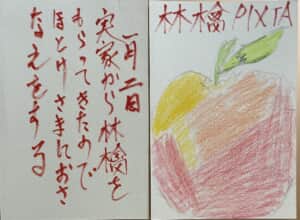 一月二日
実家から林檎を
もらってきたので
ほとけさまにおさ
なえをする
林檎 PIXTA